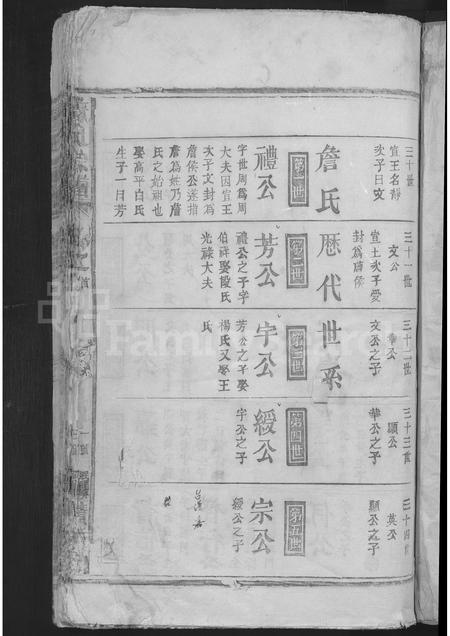 三十世
宣王名靜
次子曰文
三十一世
文公
宣王次子愛
封為詹侯
三十二世
公
文公之子
三十三世
顯公
華公之子
三十四世
英公
顯公之子
詹氏歷代世系
第一世
禮公
字世周為周
大夫因宣王
次子文封為
詹侯公遂指
詹為姓乃詹
氏之始祖也
娶高平白氏
生子一曰芳
第二世
芳公
禮公之子字
伯祥娶段氏
光祿大夫
第三世
宇公
芳公之子娶
楊氏又娶王
氏
第四世
綬公
宇公之子
第五世
宗公
綬公之子
FamilySearch